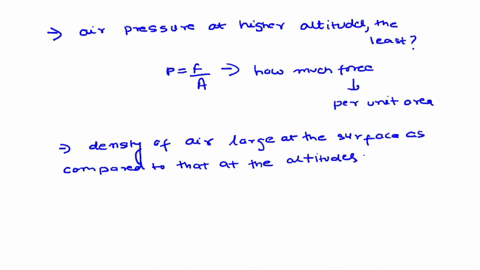 → air pressure at higher altitudes, the
least?
P = F/A → how much force
↓
per unit area
⇒ density of air large at the surface as
compared to that at the altitudes.